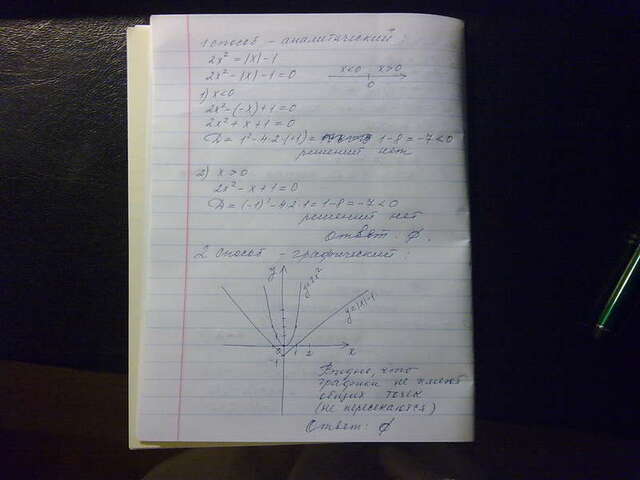 1 способ - аналитический:
2x² = |x| - 1
2x² - |x| - 1 = 0
x<0 x>0
0
1) x<0
2x² - (-x) + 1 = 0
2x² + x + 1 = 0
D = 1² - 4·2·(+1) = 1 - 8 = -7 < 0
решений нет
2) x>0
2x² - x + 1 = 0
D = (-1)² - 4·2·1 = 1 - 8 = -7 < 0
решений нет
Ответ: ∅.
2 способ - графический:
y
y=2x²
y=|x|-1
1 2 x
-1
Видно, что
графики не имеют
общих точек
(не пересекаются)
Ответ: ∅